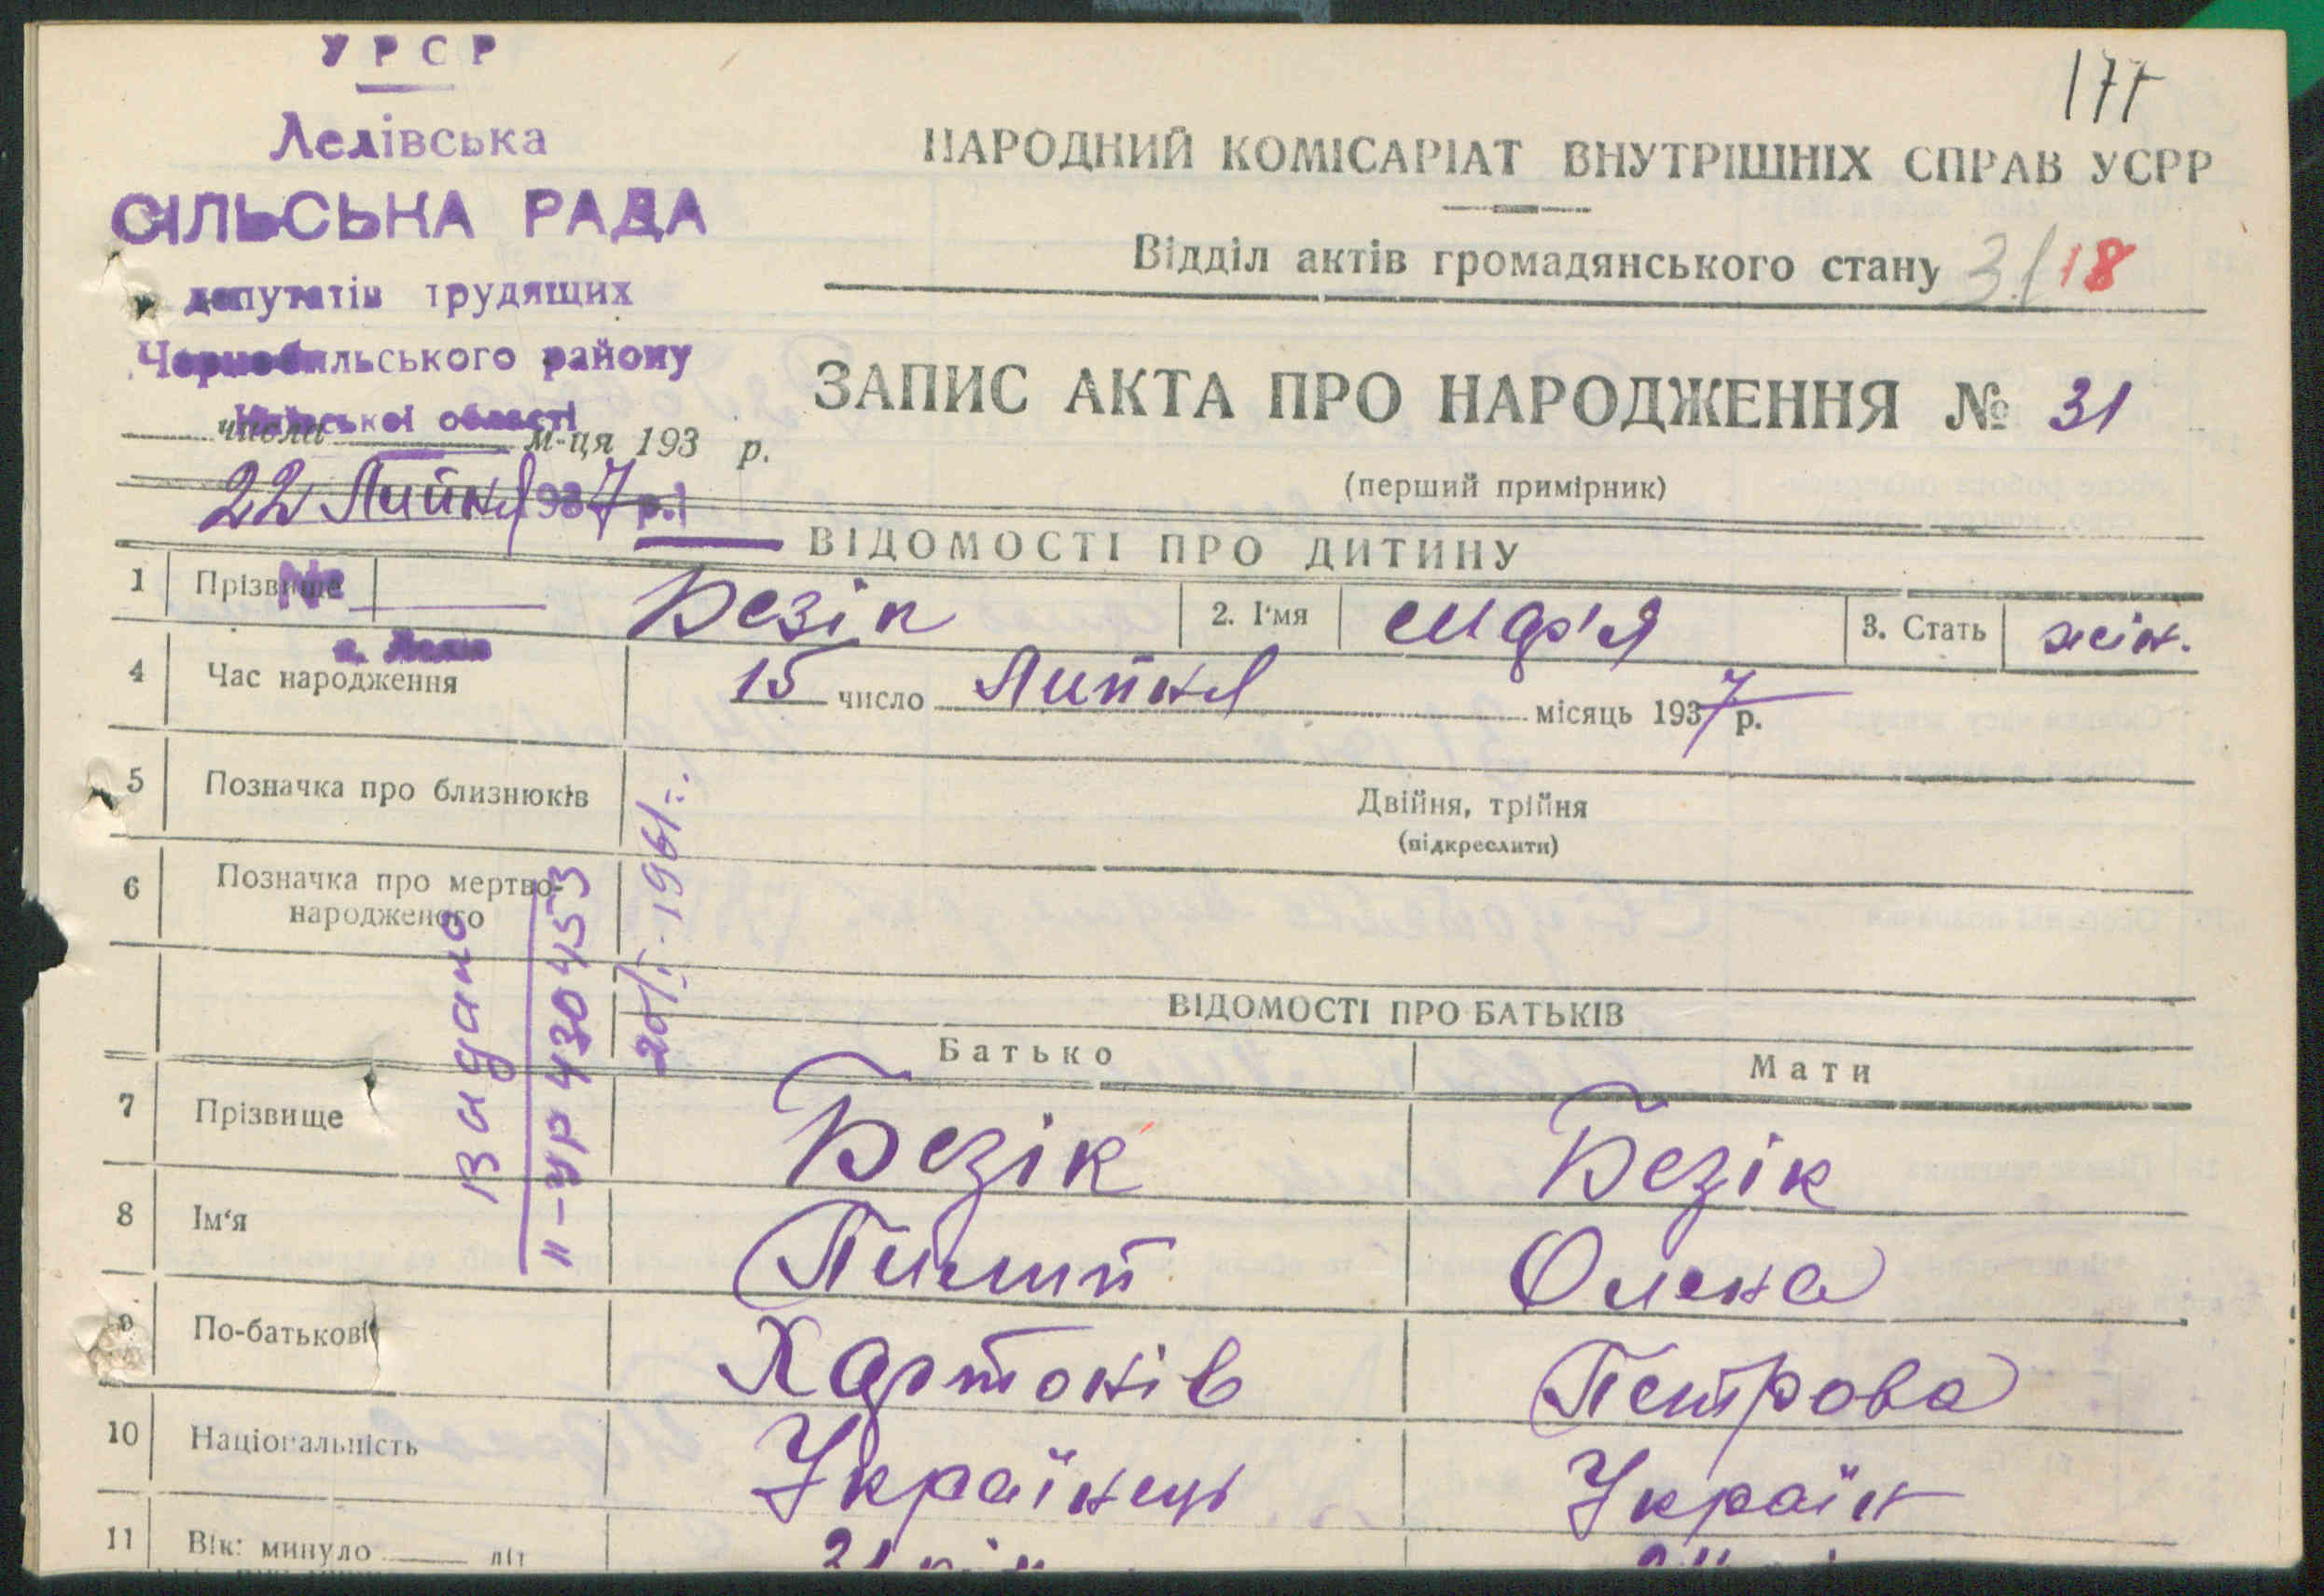 УРСР
Лелівська
СІЛЬСЬКА РАДА
депутатів трудящих
Чорнобильського району
Київської області
числа м-ця 193 р.
22 Липня 1937 р.
№
с. Лелів
177
НАРОДНИЙ КОМІСАРІАТ ВНУТРІШНІХ СПРАВ УСРР
Відділ актів громадянського стану 31 18
ЗАПИС АКТА ПРО НАРОДЖЕННЯ № 31
(перший примірник)
ВІДОМОСТІ ПРО ДИТИНУ
1 Прізвище Безік 2. І'мя Мар'я 3. Стать жін.
4 Час народження 15 число Липня місяць 1937 р.
5 Позначка про близнюків Двійня, трійня
(підкреслити)
6 Позначка про мертво-
народженого
Видано
ІІ-УР 430453
20/І-1961
ВІДОМОСТІ ПРО БАТЬКІВ
Батько Мати
7 Прізвище Безік Безік
8 Ім'я Пилип Олена
9 По-батькові Харитонів Петрова
10 Національність Українець Україн
11 Вік: минуло літ 31